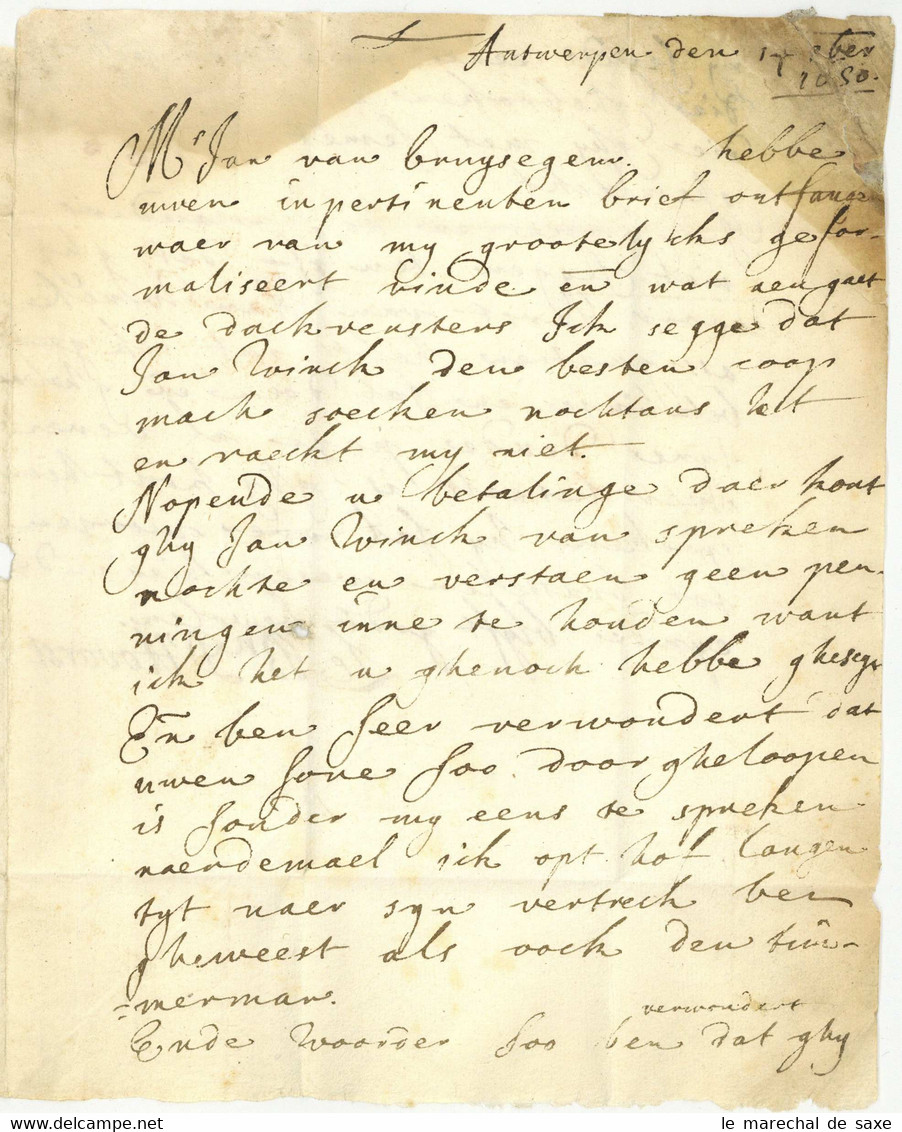 Antwerpen den 17 8ber
1680.
Mr Jan van bruysegem. hebbe
uwen inpertinenten brief ontfangen
waer van my grootelycks gefor-
maliseert vinde en̄ wat aengaet
de dackvensters Ick segge dat
Jan Winck den besten coop
mach soecken nochtans het
en raeckt my niet.
Nopende u betalinge daer kont
ghy Jan Winck van spreken
nochte en verstaen geen pen-
ningen inne te houden want
ick het u ghenoch hebbe ghesegt
En̄ ben seer verwondert dat
uwen sone soo doorgheloopen
is sonder my eens te spreken
naerdemael ick opt hof langen
tyt naer syn vertreck ben
gheweest als oock den tim-
=merman.
verwondert
Ende woorder soo ben dat ghy
le marechal de saxe